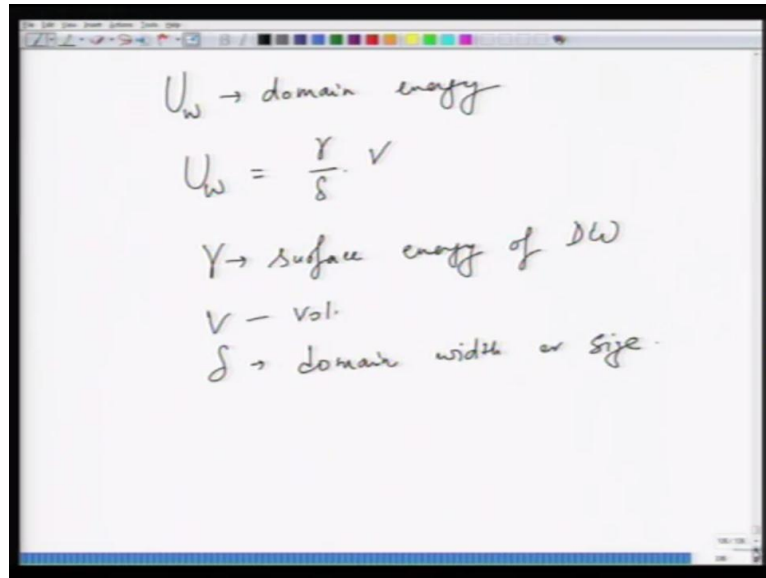 File Edit View Insert Actions Tools Help
B I
U_w → domain energy
U_w = γ/δ · V
γ → surface energy of DW
V – Vol.
δ → domain width or size.